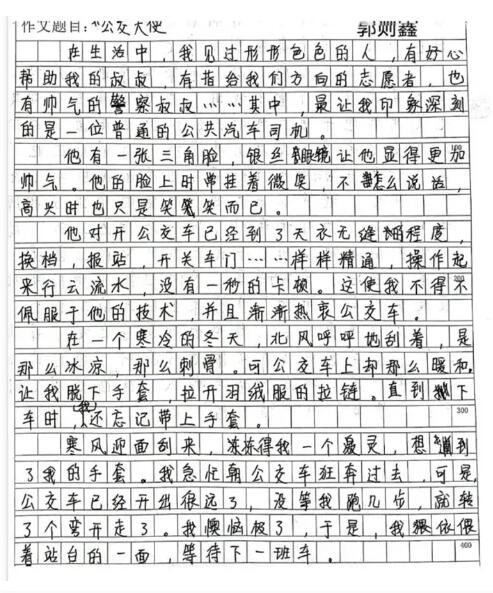 作文题目："公交天使 郭则鑫
在生活中，我见过形形色色的人，有好心
帮助我的叔叔，有指给我们方向的志愿者，也
有帅气的警察叔叔……其中，最让我印象深刻
的是一位普通的公共汽车司机。
他有一张三角脸，银丝眼镜让他显得更加
帅气。他的脸上时常挂着微笑，不怎么说话，
高兴时也只是笑笑而已。
他对开公交车已经到了天衣无缝的程度，
换档，报站，开关车门……样样精通，操作起
来行云流水，没有一秒的卡顿。这使我不得不
佩服于他的技术，并且渐渐热衷公交车。
在一个寒冷的冬天，北风呼呼地刮着，是
那么冰凉，那么刺骨。可公交车上却那么暖和，
让我脱下手套，拉开羽绒服的拉链。直到下
车时，我还忘记带上手套。
300
寒风迎面刮来，冻得我一个激灵，想到
了我的手套。我急忙朝公交车狂奔过去，可是，
公交车已经开出很远了，没等我跑几步，就转
了个弯开走了。我懊恼极了，于是，我依偎
着站台的一面，等待下一班车。
400